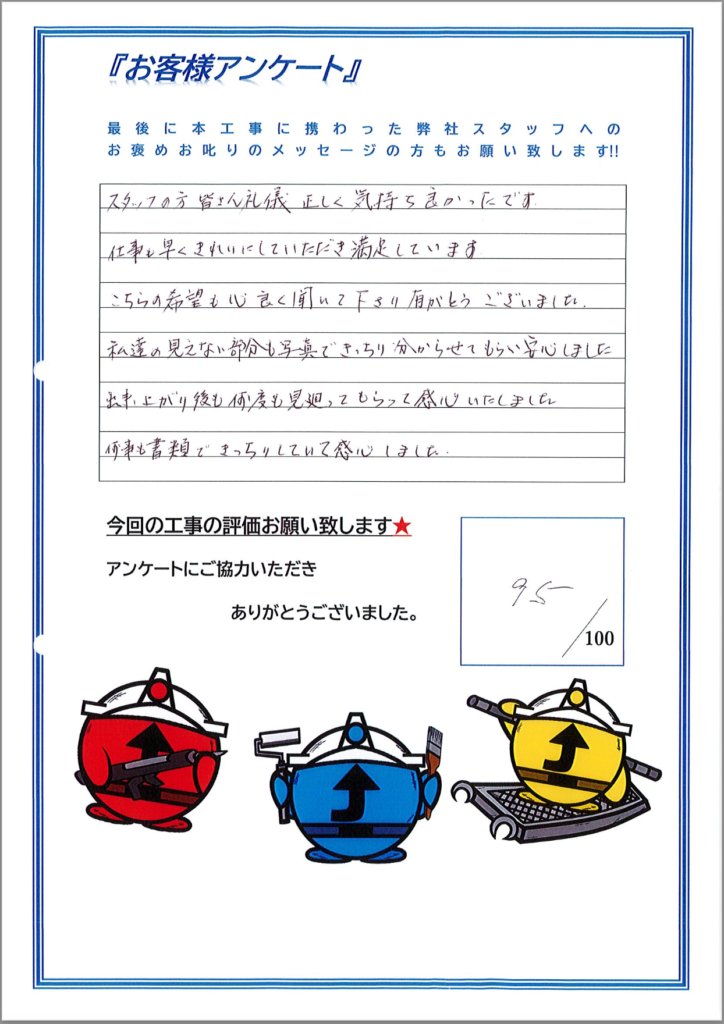 『お客様アンケート』
最後に本工事に携わった弊社スタッフへの
お褒めお叱りのメッセージの方もお願い致します!!
スタッフの方 皆さん礼儀 正しく 気持ち 良かったです
仕事も早くきれいにしていただき満足しています
こちらの希望も心良く聞いて下さり有がとうございました。
私達の見えない部分も写真できっちり分からせてもらい安心しました
出来上がり後も何度も見廻ってもらって感心いたしました
何事も書類できっちりしていて感心しました.
今回の工事の評価お願い致します★
アンケートにご協力いただき
ありがとうございました。
95/100